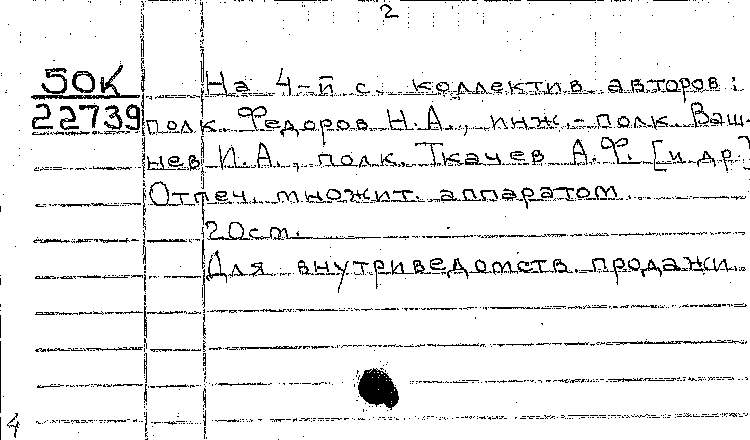 2
50К
22739
На 4-й с. коллектив авторов:
полк. Федоров Н.А., инж.-полк. Ваш-
нев И.А., полк. Ткачев А.Ф. [и др.]
Отпеч. множит. аппаратом.
20см.
Для внутриведомств. продажи.
4